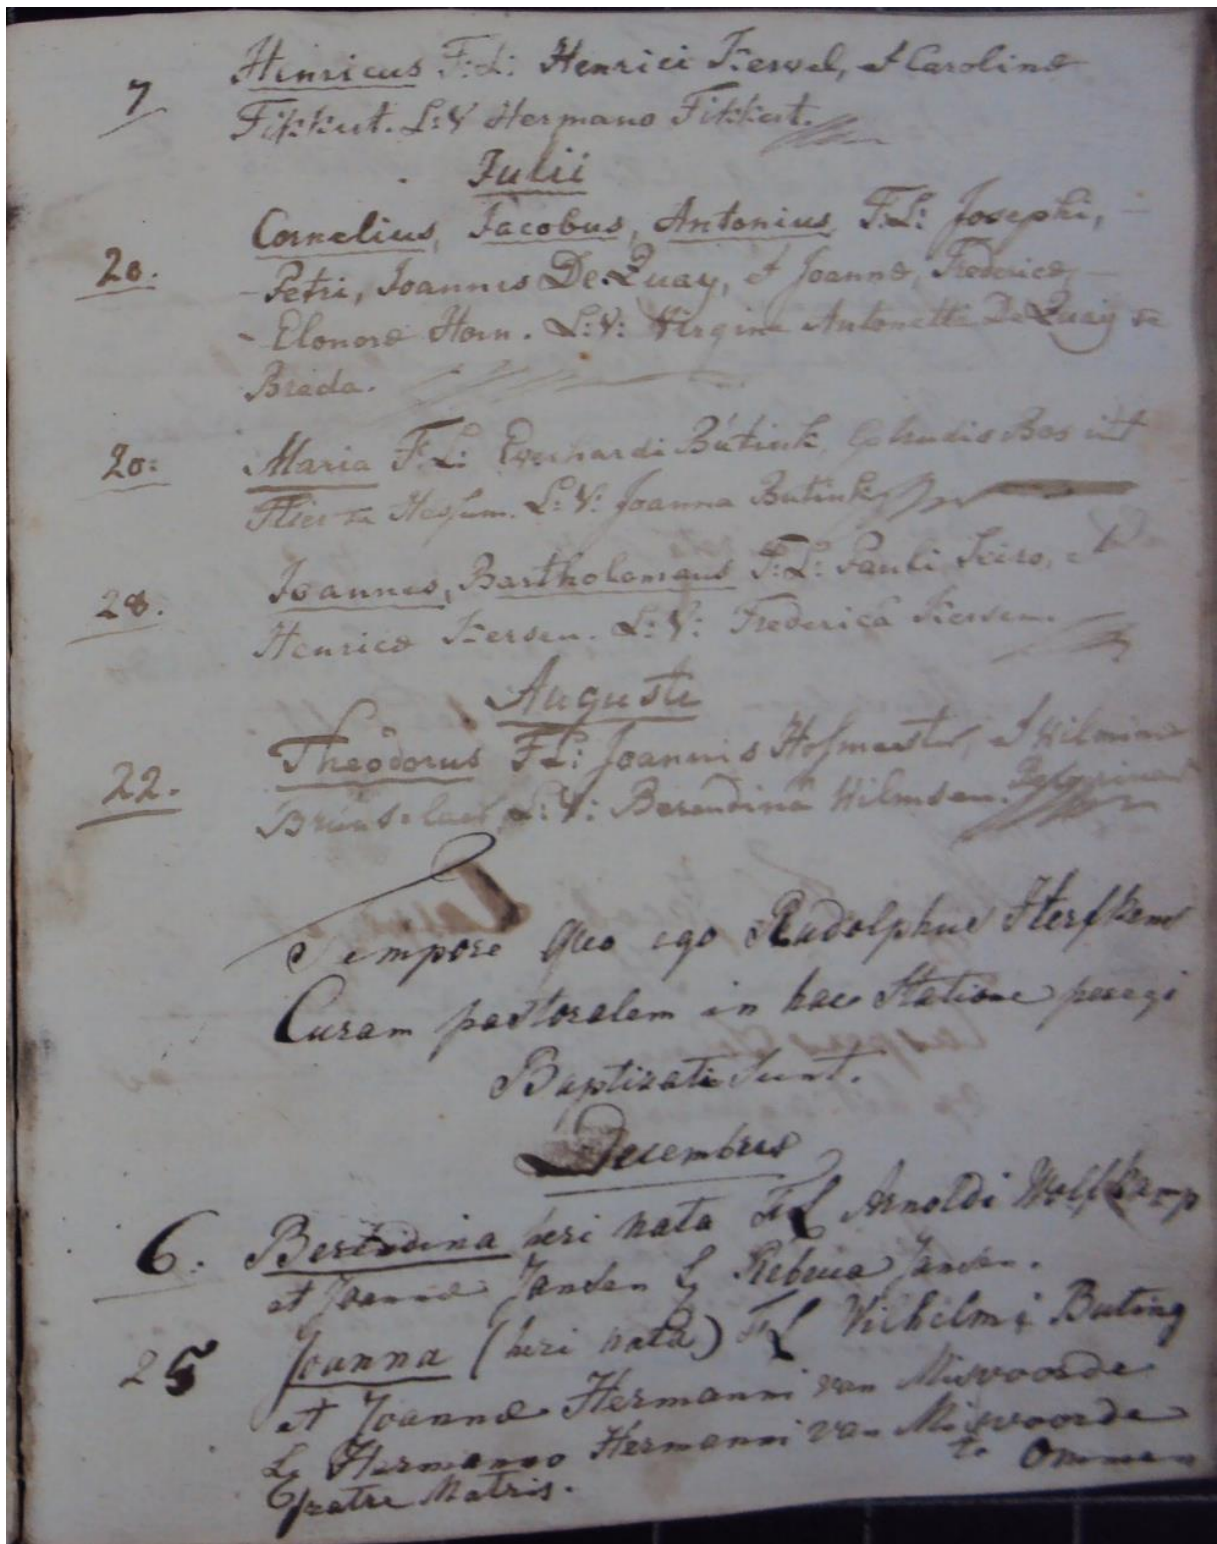 7 Hinricus F:L: Henrici Kervel, et Carolinæ
Fikkert. L:V Hermano Fikkert.
Julii
20. Cornelius, Jacobus, Antonius F:L: Josephi,
Petri, Joannis De Quay, et Joannæ, Fredericæ,
Elonoræ Horn. L:V: Virgine Antonetta De Quay te
Breda.
20: Maria F.L: Everhardi Butink, Bos
te L:V: Joanna Butink
28. Joannes, Bartholomæus F:L: Pauli et
Henricæ Kersen. L:V: Frederica Kersen.
Auguste
22. Theodorus F L: Joannis Hofmeester, et Wilminæ
L:V: Berendina Wilmsen.
Tempore quo ego Rudolphus Herfkens
Curam pastoralem in hac Statione peregi
Baptizati sunt.
Decembris
6. Berendina heri nata FL Arnoldi Wolfkamp
et Joannæ Jansen L Rebecca Jansen.
25 Joanna (heri nata) FL Wilhelmi Buting
et Joannæ Hermanni van Misvoorde
L Hermanno Hermanni van Misvoorde
te Ommen
fratre Matris.